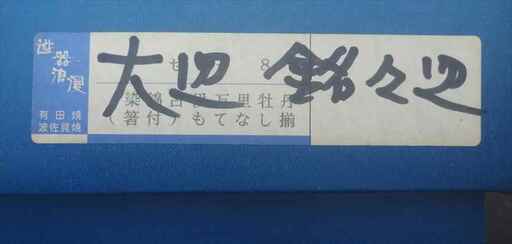 器浪漫
有田焼
波佐見焼
大辺 銘々辺
8
染錦古伊万里牡丹
(箸付)もてなし揃